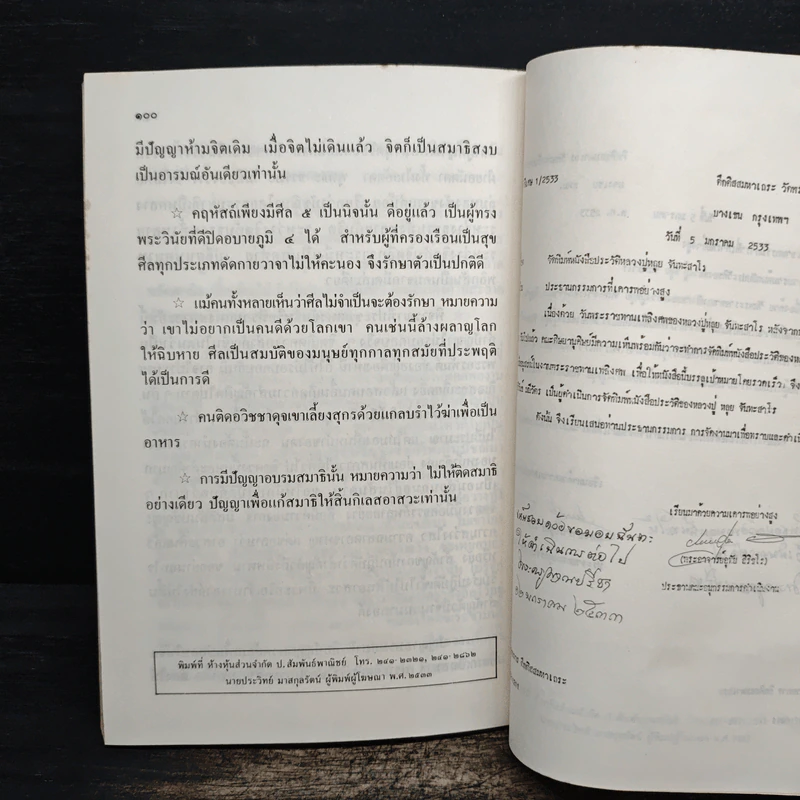 ๑๐๐
มีปัญญาห้ามจิตเดิม เมื่อจิตไม่เดินแล้ว จิตก็เป็นสมาธิสงบ
เป็นอารมณ์อันเดียวเท่านั้น
☆ คฤหัสถ์เพียงมีศีล ๕ เป็นนิจนั้น ดีอยู่แล้ว เป็นผู้ทรง
พระวินัยที่ดีปิดอบายภูมิ ๔ ได้ สำหรับผู้ที่ครองเรือนเป็นสุข
ศีลทุกประเภทดัดกายวาจาไม่ให้คะนอง จึงรักษาตัวเป็นปกติดี
☆ แม้คนทั้งหลายเห็นว่าศีลไม่จำเป็นจะต้องรักษา หมายความ
ว่า เขาไม่อยากเป็นคนดีด้วยโลกเขา คนเช่นนี้ล้างผลาญโลก
ให้ฉิบหาย ศีลเป็นสมบัติของมนุษย์ทุกกาลทุกสมัยที่ประพฤติ
ได้เป็นการดี
☆ คนติดอวิชชาดุจเขาเลี้ยงสุกรด้วยแกลบรำไว้ฆ่าเพื่อเป็น
อาหาร
☆ การมีปัญญาอบรมสมาธินั้น หมายความว่า ไม่ให้ติดสมาธิ
อย่างเดียว ปัญญาเพื่อแก้สมาธิให้สิ้นกิเลสอาสวะเท่านั้น
พิมพ์ที่ ห้างหุ้นส่วนจำกัด ป.สัมพันธ์พาณิชย์ โทร. ๒๔๑-๒๓๒๑, ๒๔๑-๒๘๖๒
นายประวิทย์ มาสกุลรัตน์ ผู้พิมพ์ผู้โฆษณา พ.ศ.๒๕๓๓
1/2533
ตึกติสสมหาเถระ
บางเขน กรุงเทพฯ
วันที่ 5 มกราคม 2533
จัดพิมพ์หนังสือประวัติหลวงปู่หลุย จันทะสาโร
ประธานกรรมการที่เคารพอย่างสูง
เนื่องด้วย วันพระราชทานเพลิงศพของหลวงปู่หลุย จันทะสาโร
แล้ว คณะศิษยานุศิษย์มีความเห็นพร้อมกันว่าจะทำการจัดพิมพ์หนังสือประวัติของ
เพื่อให้หนังสือนี้บรรลุเป้าหมายโดยรวดเร็ว จึง
เป็นผู้ดำเนินการจัดพิมพ์หนังสือประวัติของหลวงปู่ หลุย จันทะสาโร
ดังนั้น จึงเรียนเสนอท่านประธานกรรมการ การจัดงานมาเพื่อทราบและ
เรียนมาด้วยความเคารพอย่างสูง
ให้ดำเนินการต่อไป
ประธานคณะอนุกรรมการดำเนินงาน
มกราคม ๒๕๓๓